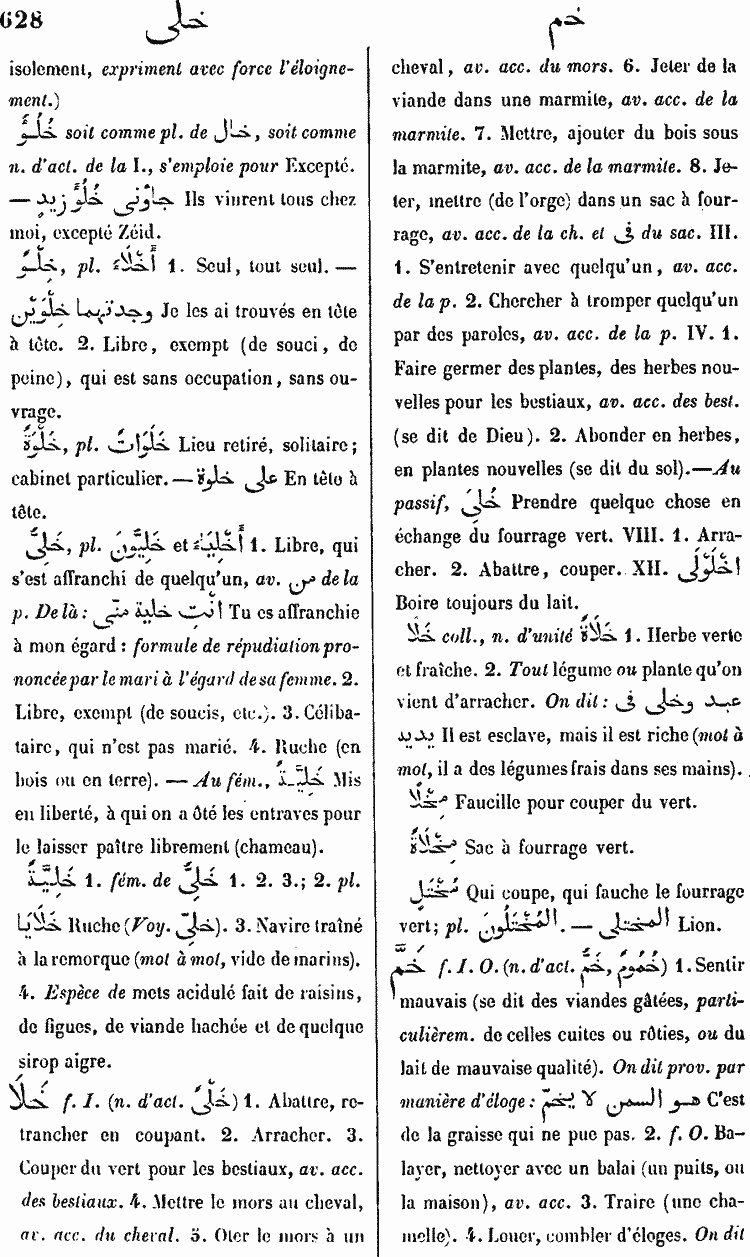 628
خلى
خم
isolement, expriment avec force l'éloigne-
ment.)
خُلُوٌّ soit comme pl. de خال, soit comme
n. d'act. de la I., s'emploie pour Excepté.
— جاؤنى خُلُوَّ زيدٍ Ils vinrent tous chez
moi, excepté Zéid.
خِلْوٌ, pl. أَخْلَاءٌ 1. Seul, tout seul. —
وجدتهما خِلْوَيْنِ Je les ai trouvés en tête
à tête. 2. Libre, exempt (de souci, de
peine), qui est sans occupation, sans ou-
vrage.
خَلْوَةٌ, pl. خَلَوَاتٌ Lieu retiré, solitaire;
cabinet particulier. — على خلوة En tête à
tête.
خَلِىٌّ, pl. خَلِيُّونَ et أَخْلِيَاءُ 1. Libre, qui
s'est affranchi de quelqu'un, av. من de la
p. De là : انتِ خلية منّى Tu es affranchie
à mon égard : formule de répudiation pro-
noncée par le mari à l'égard de sa femme. 2.
Libre, exempt (de soucis, etc.). 3. Céliba-
taire, qui n'est pas marié. 4. Ruche (en
bois ou en terre). — Au fém., خَلِيَّةٌ Mis
en liberté, à qui on a ôté les entraves pour
le laisser paître librement (chameau).
خَلِيَّةٌ 1. fém. de خَلِىٌّ 1. 2. 3.; 2. pl.
خَلَايَا Ruche (Voy. خلىّ). 3. Navire traîné
à la remorque (mot à mot, vide de marins).
4. Espèce de mets acidulé fait de raisins,
de figues, de viande hachée et de quelque
sirop aigre.
خَلَا f. I. (n. d'act. خَلْىٌ) 1. Abattre, re-
trancher en coupant. 2. Arracher. 3.
Couper du vert pour les bestiaux, av. acc.
des bestiaux. 4. Mettre le mors au cheval,
av. acc. du cheval. 5. Oter le mors à un
cheval, av. acc. du mors. 6. Jeter de la
viande dans une marmite, av. acc. de la
marmite. 7. Mettre, ajouter du bois sous
la marmite, av. acc. de la marmite. 8. Je-
ter, mettre (de l'orge) dans un sac à four-
rage, av. acc. de la ch. et فى du sac. III.
1. S'entretenir avec quelqu'un, av. acc.
de la p. 2. Chercher à tromper quelqu'un
par des paroles, av. acc. de la p. IV. 1.
Faire germer des plantes, des herbes nou-
velles pour les bestiaux, av. acc. des best.
(se dit de Dieu). 2. Abonder en herbes,
en plantes nouvelles (se dit du sol).—Au
passif, خُلِىَ Prendre quelque chose en
échange du fourrage vert. VIII. 1. Arra-
cher. 2. Abattre, couper. XII. اخْلَوْلَى
Boire toujours du lait.
خَلًا coll., n. d'unité خَلَاةٌ 1. Herbe verte
et fraîche. 2. Tout légume ou plante qu'on
vient d'arracher. On dit : عبد وخلى فى
يديد Il est esclave, mais il est riche (mot à
mot, il a des légumes frais dans ses mains).
مِخْلًا Faucille pour couper du vert.
مِخْلَاةٌ Sac à fourrage vert.
مُخْتَلٍ Qui coupe, qui fauche le fourrage
vert; pl. المُخْتَلُونَ. — المختلى Lion.
خَمَّ f. I. O. (n. d'act. خَمٌّ, خُمُومٌ) 1. Sentir
mauvais (se dit des viandes gâtées, parti-
culièrem. de celles cuites ou rôties, ou du
lait de mauvaise qualité). On dit prov. par
manière d'éloge : هو السمن لا يخمّ C'est
de la graisse qui ne pue pas. 2. f. O. Ba-
layer, nettoyer avec un balai (un puits, ou
la maison), av. acc. 3. Traire (une cha-
melle). 4. Louer, combler d'éloges. On dit